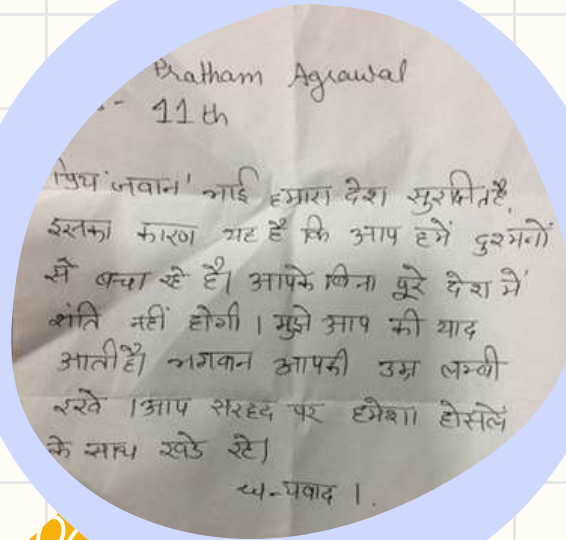 Pratham Agrawal
- 11th
प्रिय 'जवान' भाई हमारा देश सुरक्षित है,
इसका कारण यह है कि आप हमें दुश्मनों
से बचा रहे है। आपके बिना पूरे देश में
शांति नहीं होगी । मुझे आप की याद
आती है। भगवान आपकी उम्र लम्बी
रखे । आप सरहद पर हमेशा होसलें
के साथ खडे रहे।
धन्यवाद ।.